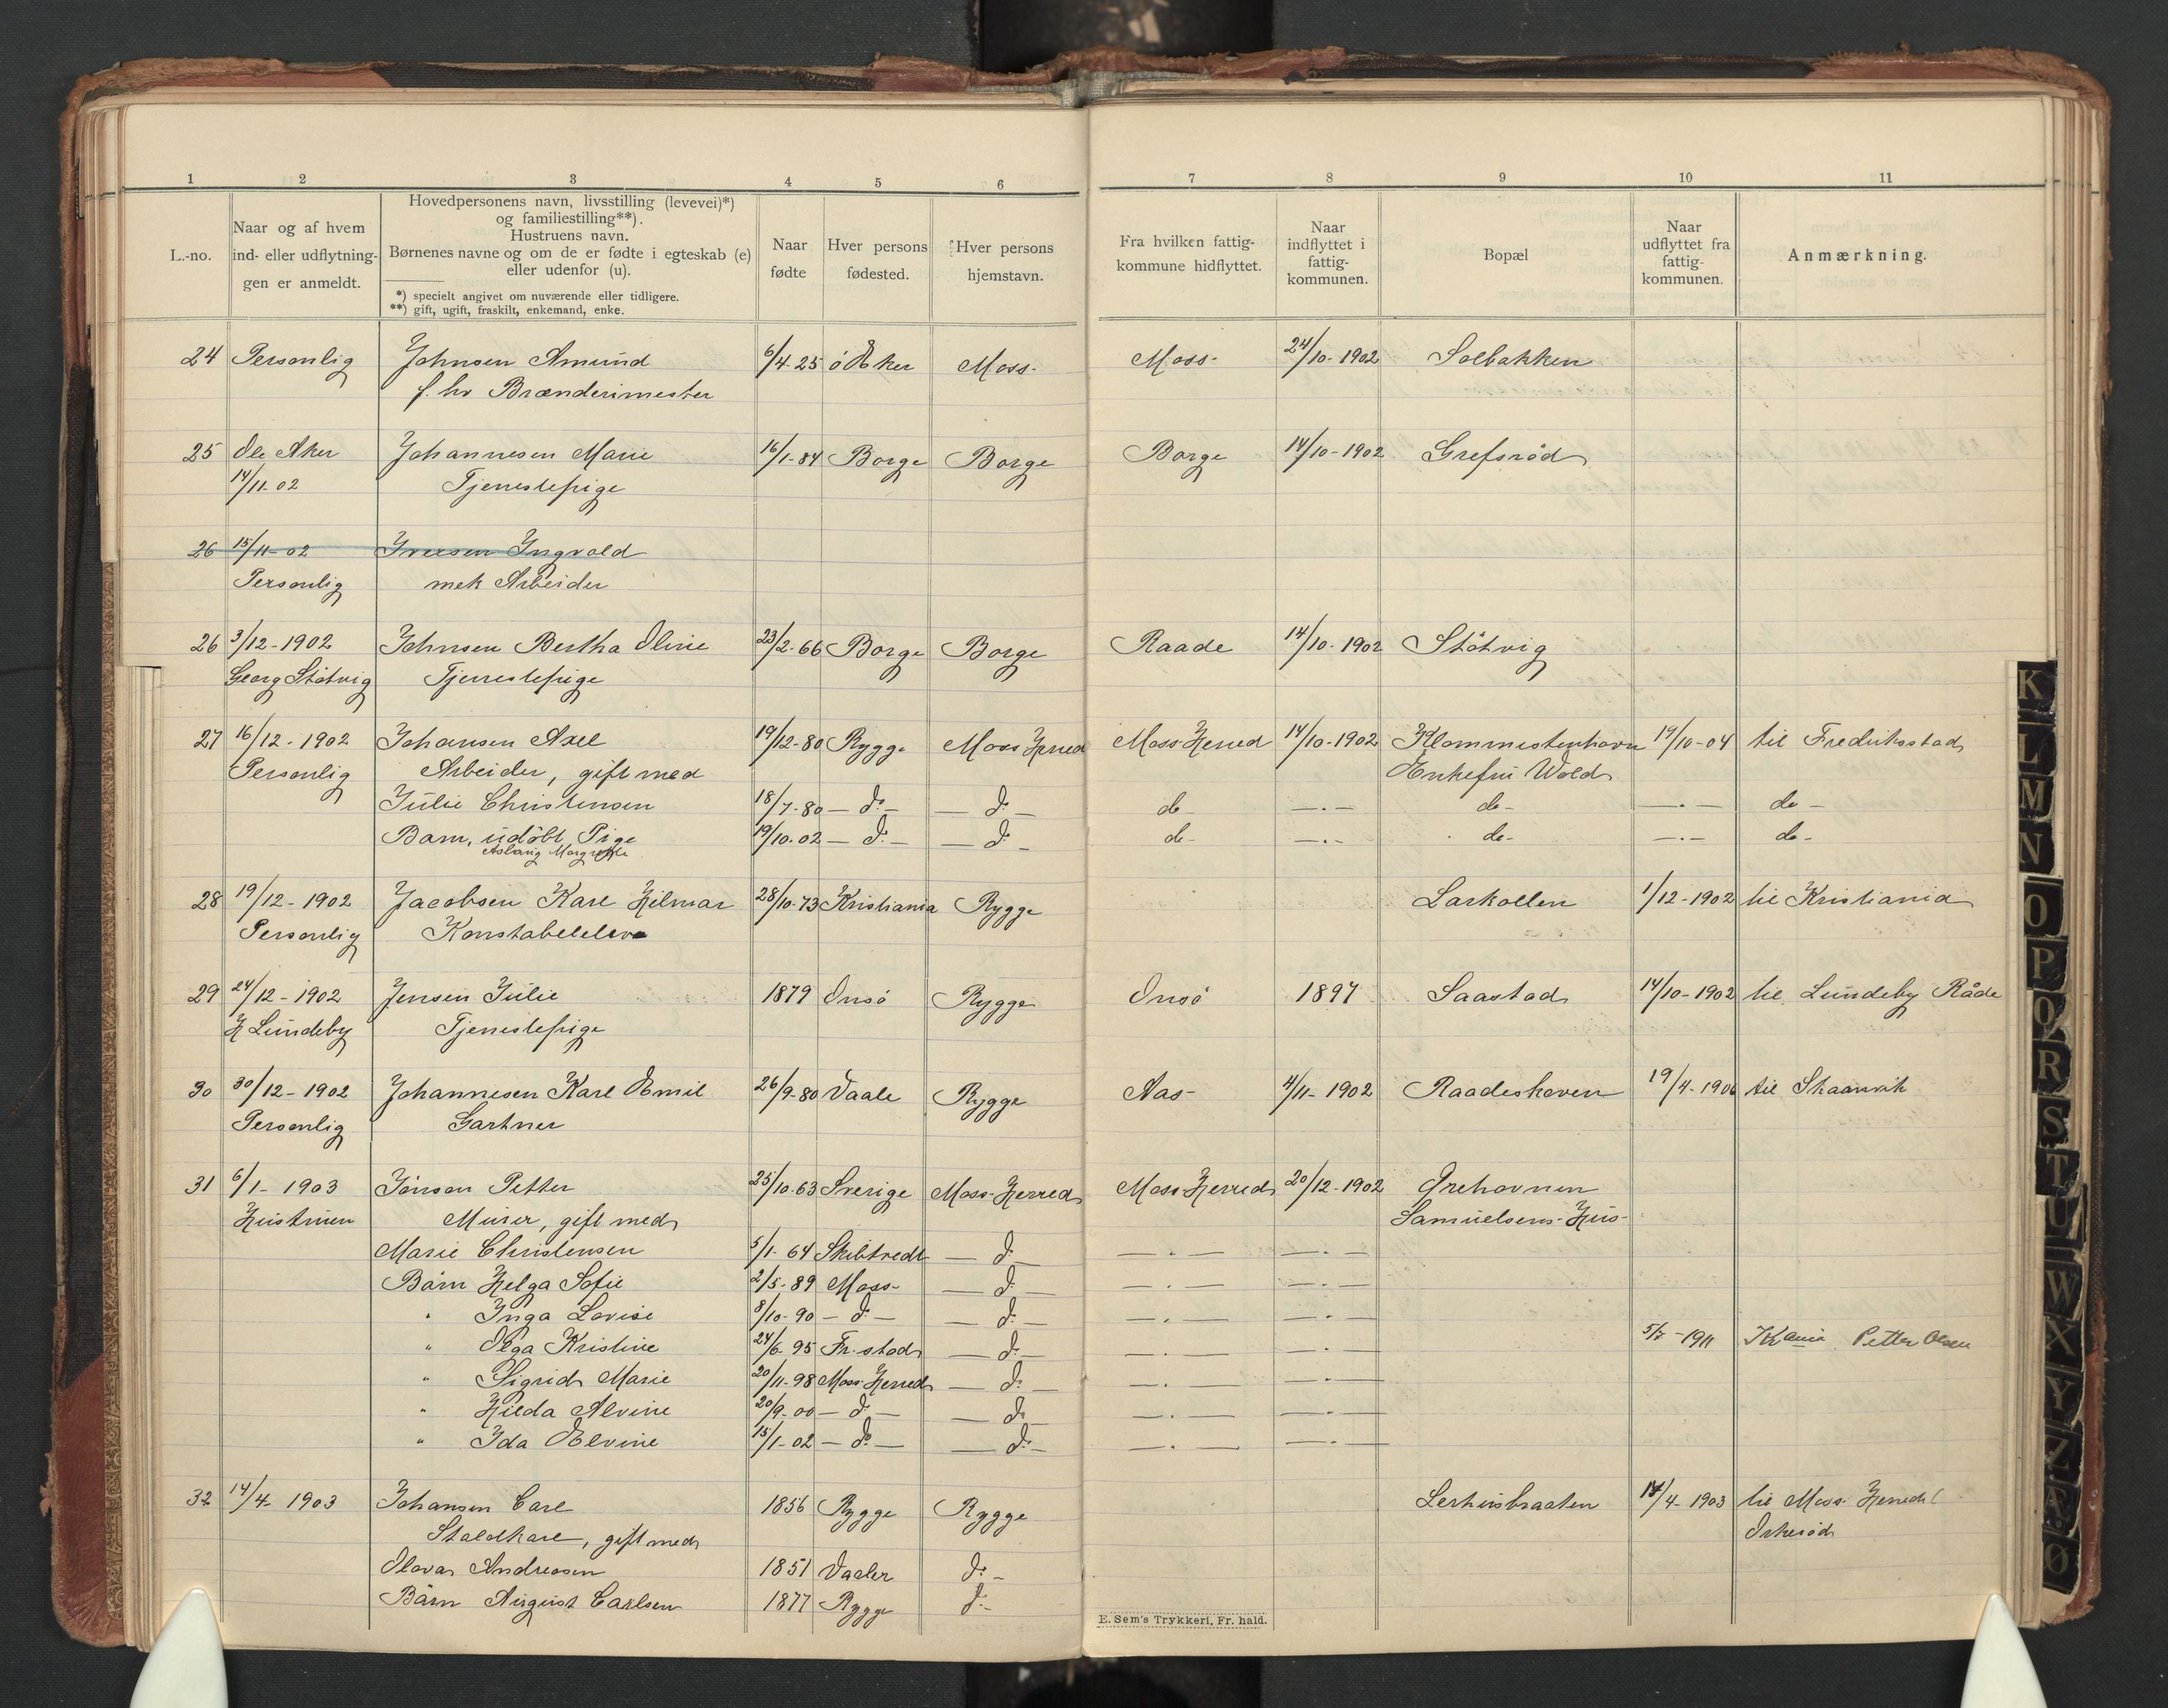 1 2 3 4 5 6 7 8 9 10 11
L.-no.
Naar og af hvem
ind- eller udflytnin-
gen er anmeldt.
Hovedpersonens navn, livsstilling (levevei)*)
og familiestilling**).
Hustruens navn.
Børnenes navne og om de er fødte i egteskab (e)
eller udenfor (u).
*) specielt angivet om nuværende eller tidligere.
**) gift, ugift, fraskilt, enkemand, enke.
Naar
fødte
Hver persons
fødested.
Hver persons
hjemstavn.
Fra hvilken fattig-
kommune hidflyttet.
Naar
indflyttet i
fattig-
kommunen.
Bopæl
Naar
udflyttet fra
fattig-
kommunen.
Anmærkning.
24 Personlig Johnsen Amund 6/4-25 ö Aker Moss- Moss- 24/10-1902 Solbakken
f. hv Brænderimester
25 Ole Aker Johannesen Marie 16/1-84 Borge Borge Borge 14/10-1902 Grefsröd
14/11-02 Tjenestepige
26 15/11-02 Iversen Ingvald
Personlig mek Arbeider
26 3/12-1902 Johnsen Bertha Oline 23/2-66 Borge Borge Raade 14/10-1902 Stötvig
Georg Stötvig Tjenestepige
27 16/12-1902 Johansen Axel 19/12-80 Rygge Moss Herred Moss Herred 14/10-1902 Klommestenhavn 19/10-04 til Fredriksstad
Personlig Arbeider, gift med Enkefru Wold
Julie Christensen 18/7-80 — do — — do — do — . — do — — . — do —
Barn, udöbt Pige 19/10-02 — do — — do — do — . — do — — . — do —
Aslaug Margrethe
28 19/12-1902 Jacobsen Karl Hilmar 28/10-73 Kristiania Rygge Larkollen 1/12-1902 til Kristiania
Personlig Konstabelelev
29 24/12-1902 Jensen Julie 1879 Onsö Rygge Onsö 1897 Saastad 14/10-1902 til Lundeby Råde
H Lundeby Tjenestepige
30 30/12-1902 Johannesen Karl Emil 26/9-80 Vaale Rygge Aas- 4/11-1902 Raadeskoven 19/4-1906 til Skaanvik
Personlig Gartner
31 6/1-1903 Jonson Petter 25/10-63 Sverige Moss-Herred Moss Herred 20/12-1902 Grehavnen
Hustruen Murer, gift med Samuelsens-Hus-
Marie Christensen 5/1-64 Skibtvedt — do — — . — — . —
Børn Helga Sofie 2/5-89 Moss- — do — — . — — . —
" Inga Lovise 8/10-90 — do — — do — — . — — . —
" Olga Kristine 24/6-95 Fr.stad — do — — . — — . — -1911 Kania Petter Olsen
" Sigrid Marie 20/11-98 Moss-Herred — do — — . — — . —
" Hilda Alvine 20/9-00 — do — — do — — . — — . —
" Ida Elvine 15/1-02 — do — — do — — . — — . —
32 14/4-1903 Johansen Carl 1856 Rygge Rygge Lerhusbraaten 14/4-1903 til Moss Herred
Staldkarl, gift med Orkeröd
Olava Andreasen 1851 Vaaler do —
Børn August Carlsen 1877 Rygge do —
E. Sem's Trykkeri, Fr. hald.
K
L
M
N
O
P
Q
R
S
T
U
W
X
Y
Z
Æ
Ø